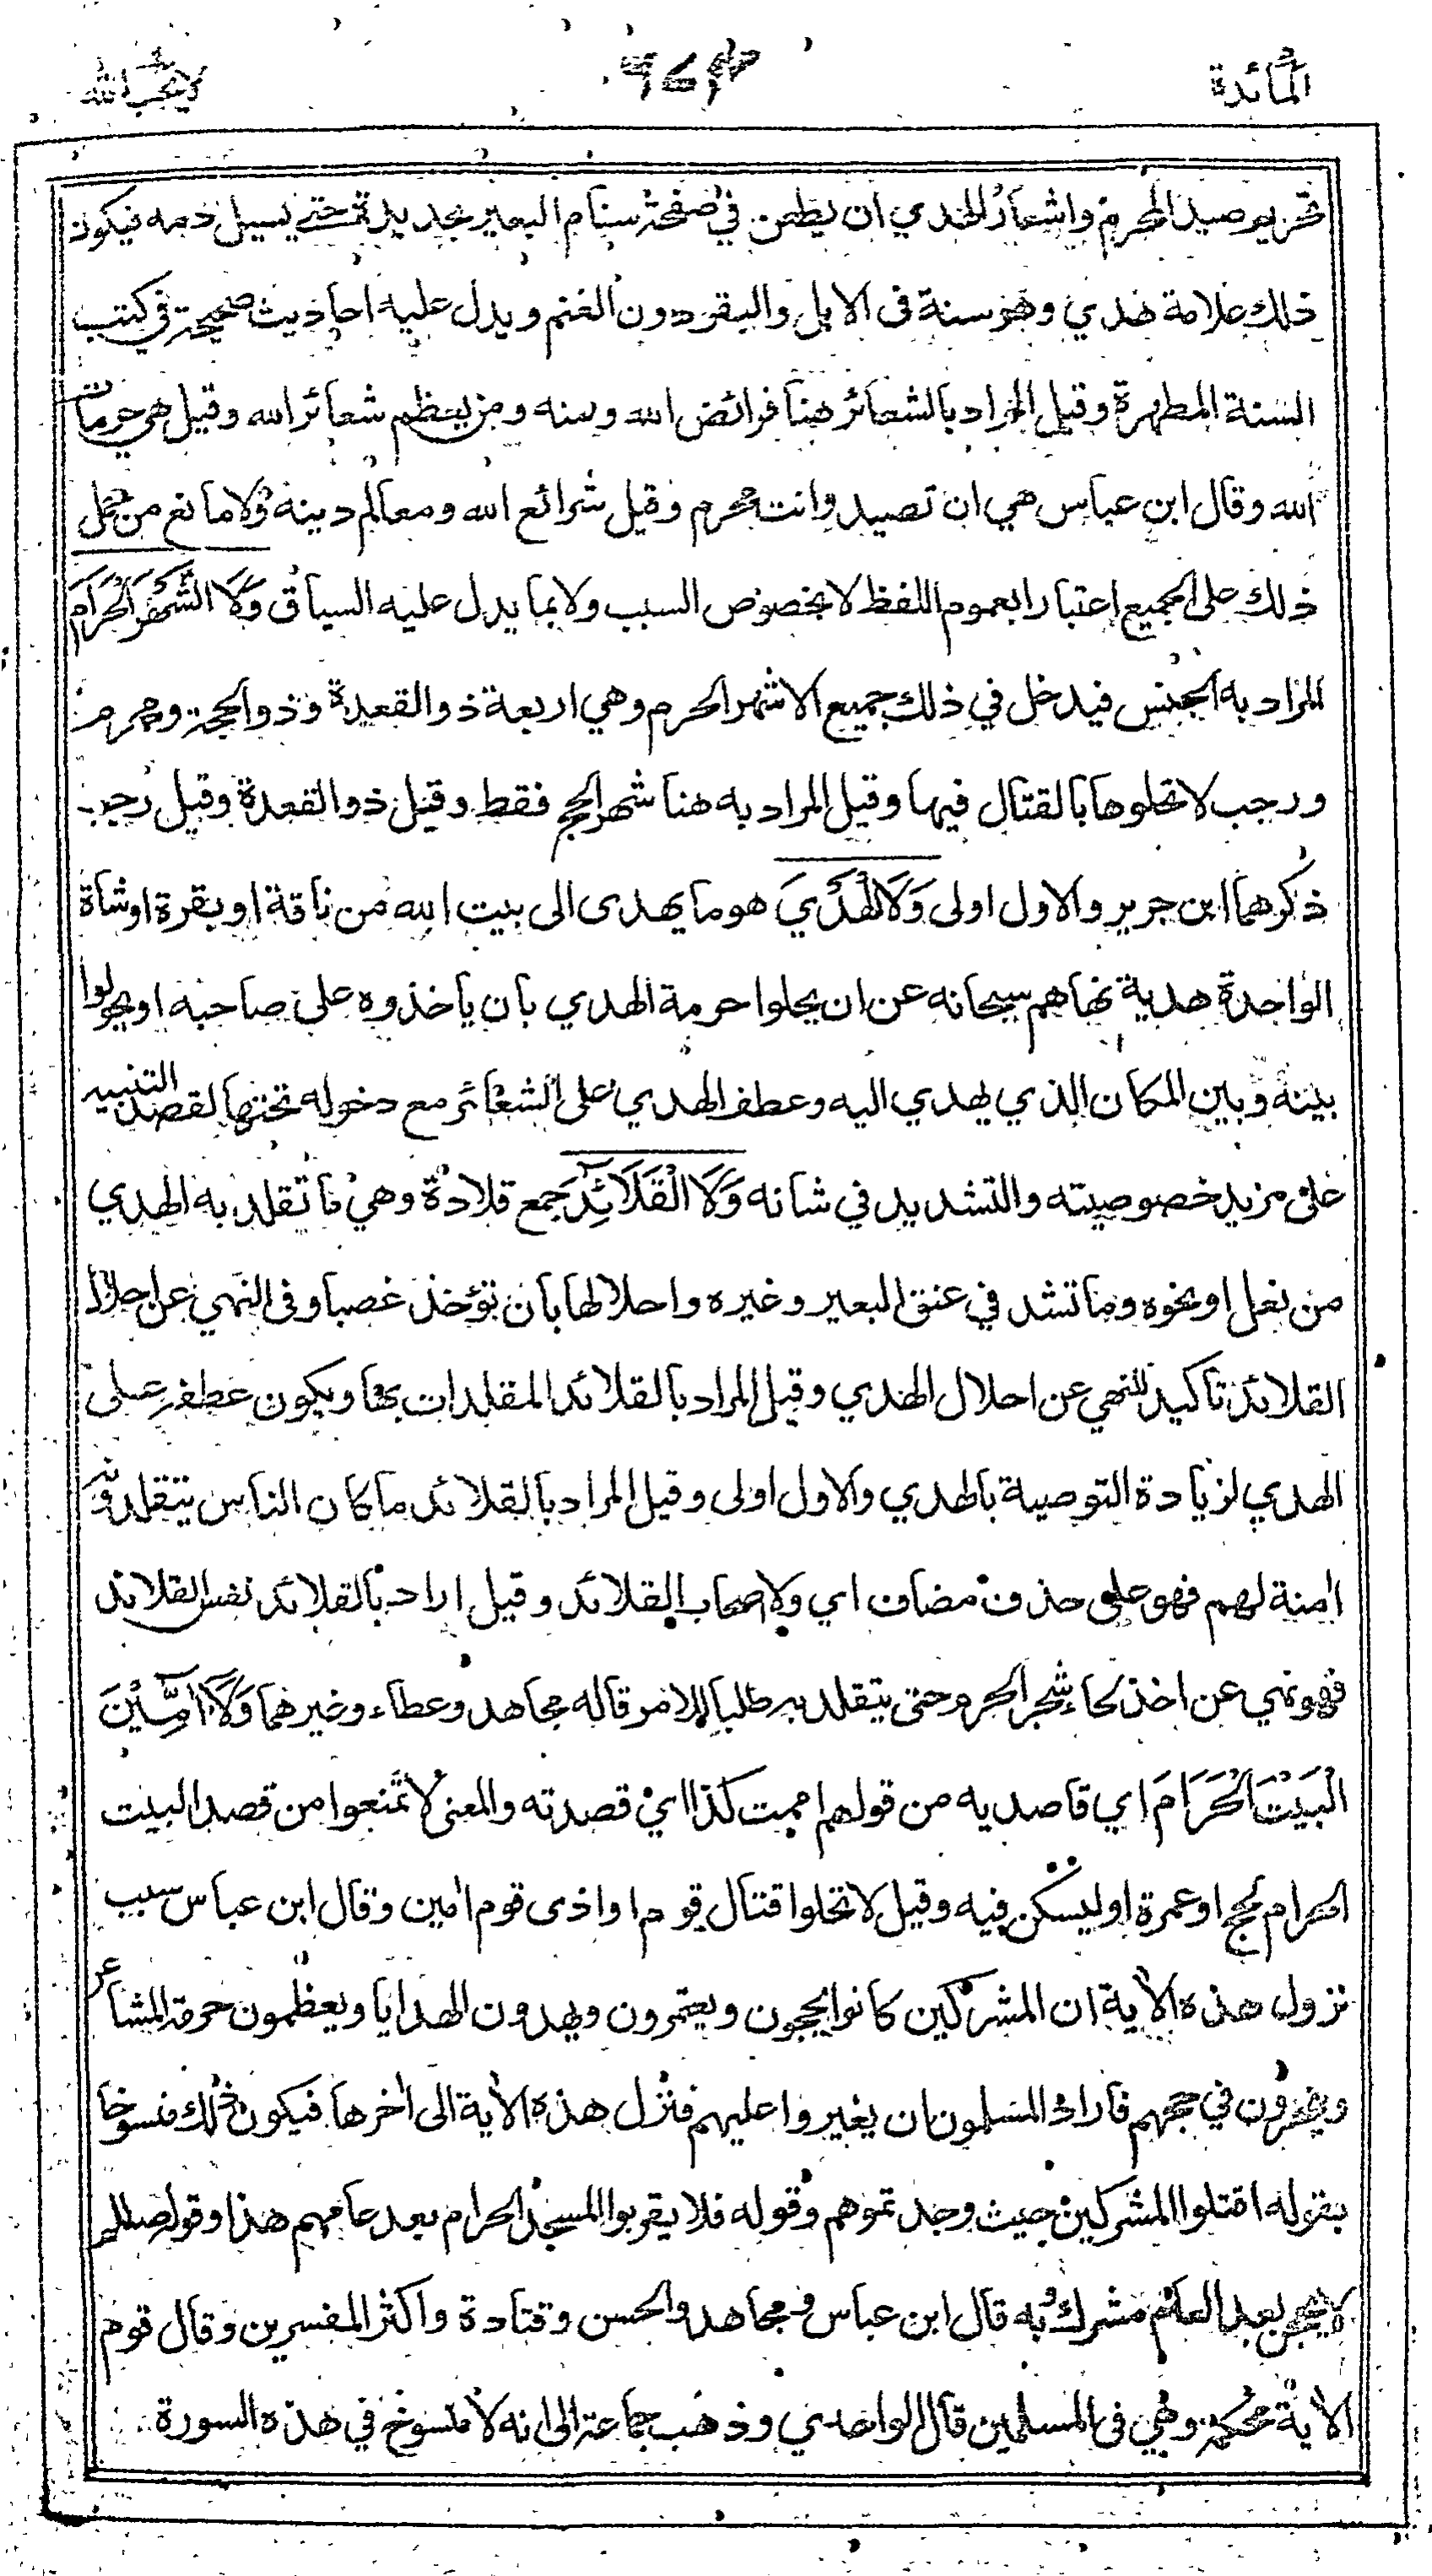 المائدة
لا يحب الله
تحريم صيد المحرم واشعار الهدي ان يطعن في صفحة سنام البعير بحديدة حتى يسيل دمه فيكون
ذلك علامة هدي وهو سنة فى الابل والبقر دون الغنم ويدل عليه احاديث صحيحة في كتب
السنة المطهرة وقيل المراد بالشعائر هنا فرائض الله ومنه ومن يعظم شعائر الله وقيل هي حرمات
الله وقال ابن عباس هي ان تصيد وانت محرم وقيل شرائع الله ومعالم دينه ولا مانع من حمل
ذلك على الجميع اعتبارا بعموم اللفظ لا بخصوص السبب ولا بما يدل عليه السياق وَلَا الشَّهْرَ الْحَرَامَ
المراد به الجنس فيدخل في ذلك جميع الاشهر الحرم وهي اربعة ذو القعدة وذو الحجة ومحرم
ورجب لا تحلوها بالقتال فيها وقيل المراد به هنا شهر الحج فقط وقيل ذو القعدة وقيل رجب
ذكرهما ابن جرير والاول اولى وَلَا الْهَدْيَ هو ما يهدى الى بيت الله من ناقة او بقرة او شاة
الواحدة هدية نهاهم سبحانه عن ان يحلوا حرمة الهدي بان ياخذوه على صاحبه او يحولوا
بينه وبين المكان الذي يهدي اليه وعطف الهدي على الشعائر مع دخوله تحتها لقصد التنبيه
على مزيد خصوصيته والتشديد في شانه وَلَا الْقَلَائِدَ جمع قلادة وهي ما تقلد به الهدي
من نعل او نحوه وما تشد في عنق البعير وغيره واحلالها بان تؤخذ غصبا وفى النهي عن احلال
القلائد تاكيد للنهي عن احلال الهدي وقيل المراد بالقلائد المقلدات بها ويكون عطفه على
الهدي لزيادة التوصية بالهدي والاول اولى وقيل المراد بالقلائد ما كان الناس يتقلدونه
امنة لهم فهو على حذف مضاف اي ولا اصحاب القلائد وقيل اراد بالقلائد نفس القلائد
فهو نهي عن اخذ لحاء شجر الحرم حتى يتقلد به طلبا للامن قاله مجاهد وعطاء وغيرهما وَلَا آمِّينَ
الْبَيْتَ الْحَرَامَ اي قاصديه من قولهم اممت كذا اي قصدته والمعنى لا تمنعوا من قصد البيت
الحرام لحج او عمرة او ليسكن فيه وقيل لا تحلوا قتال قوم او اذى قوم امين وقال ابن عباس سبب
نزول هذه الاية ان المشركين كانوا يحجون ويعتمرون ويهدون الهدايا ويعظمون حرمة المشاعر
وينحرون في حجهم فاراد المسلمون ان يغيروا عليهم فنزل هذه الاية الى اخرها فيكون ذلك منسوخا
بقوله اقتلوا المشركين حيث وجدتموهم وقوله فلا يقربوا المسجد الحرام بعد عامهم هذا وقوله صللم
لا يحجن بعد العام مشرك وبه قال ابن عباس ومجاهد والحسن وقتادة واكثر المفسرين وقال قوم
الاية محكمة وهي فى المسلمين قال الواحدي وذهب جماعة الى انه لا منسوخ في هذه السورة